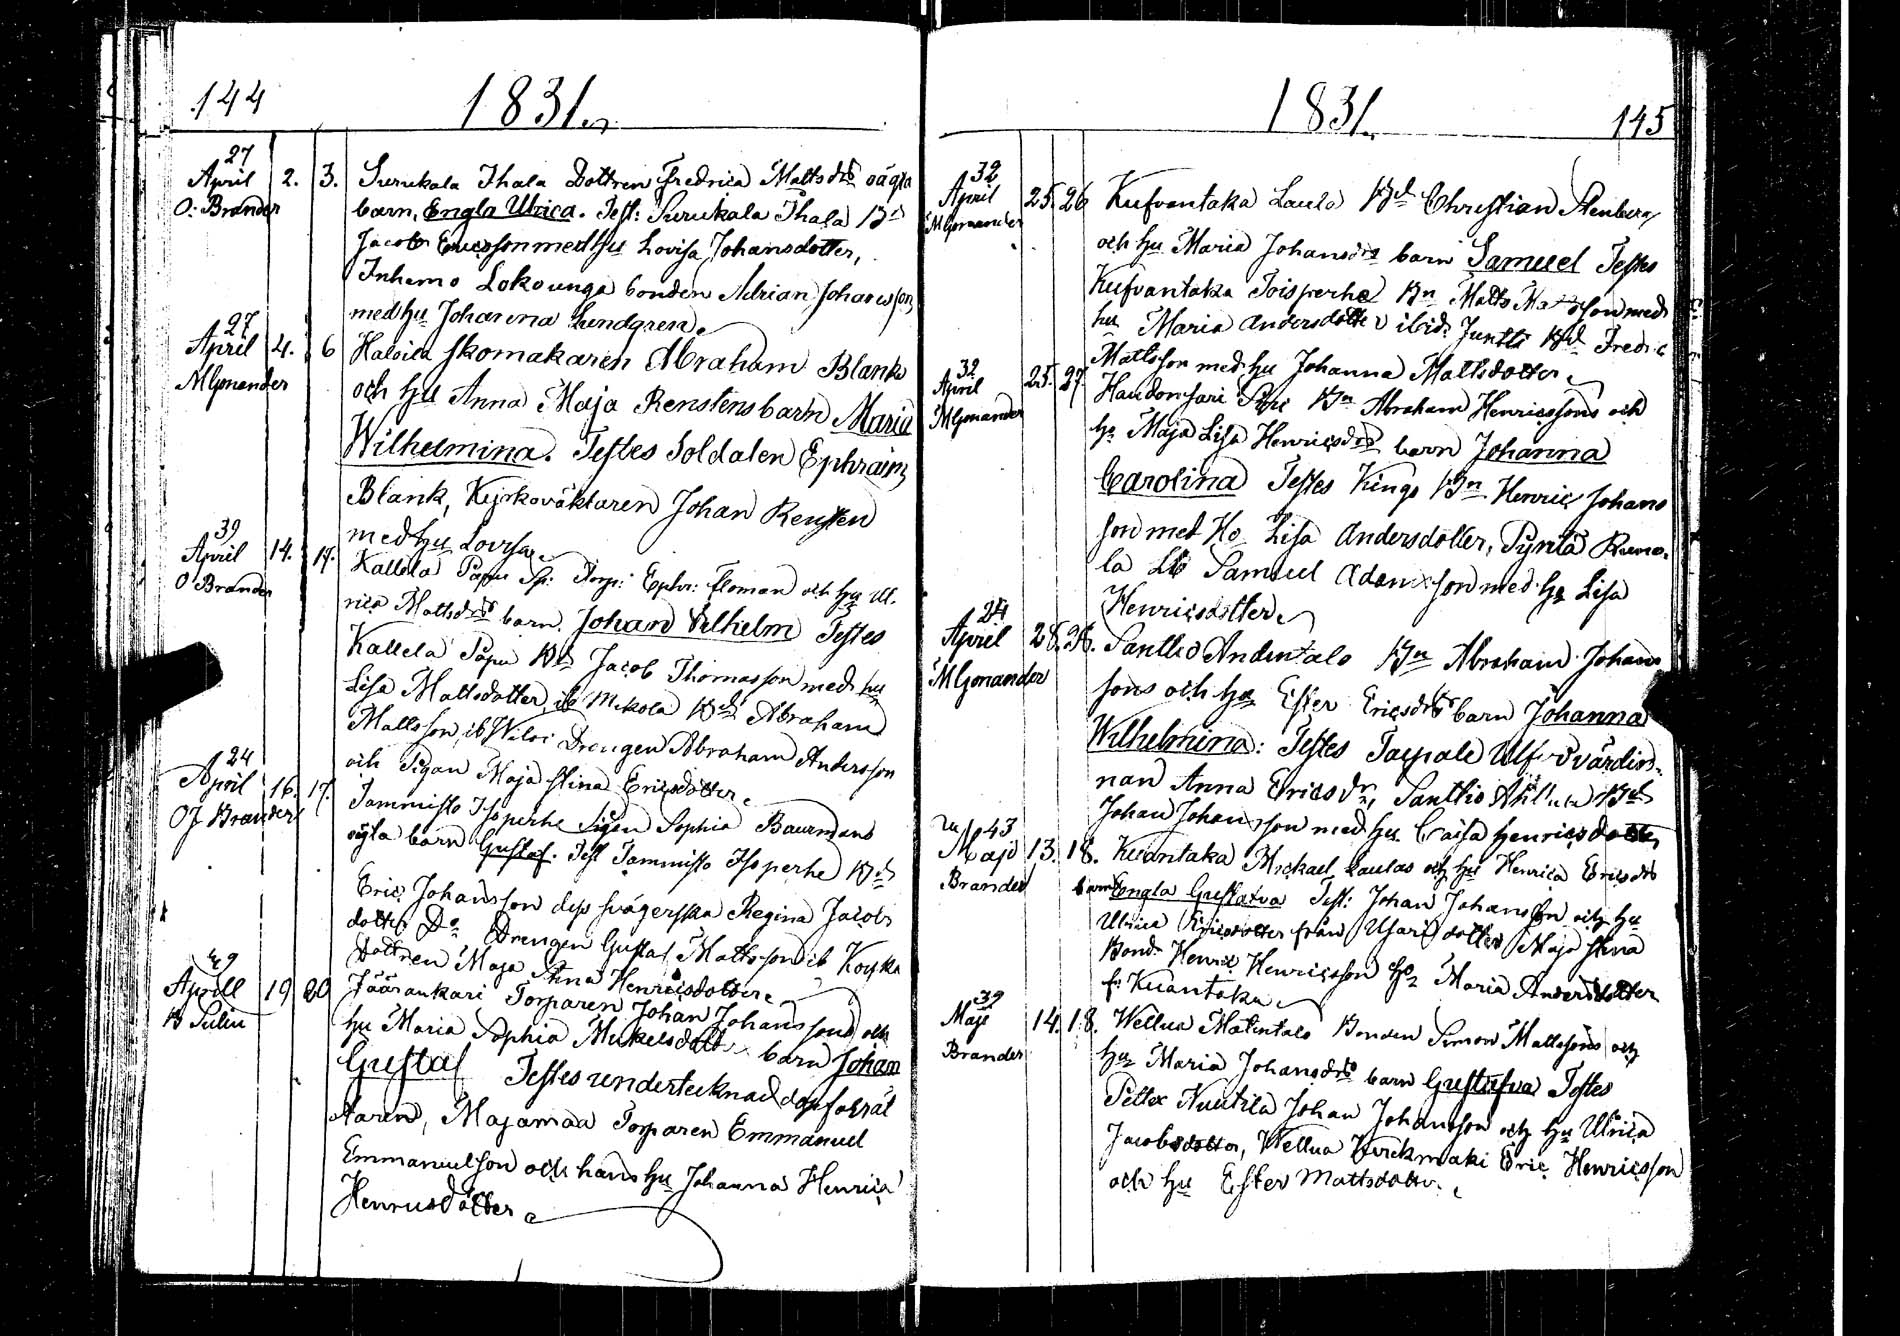 144 1831.
27
April 2. 3. Surukala Thala Dottren Fredrica Mattsdrs oägta
O: Brander barn, Engla Ulrica. Test: Surukala Thala Bd
Jacob Ericsson med hu Lovisa Johansdotter,
Inhemo Lokounga bonden Adrian Johansson
med hu Johanna Lundgren.
27
April 4. 6 Haloila skomakaren Abraham Blanks
MGonander och hu Anna Maja Renstens barn Maria
Wilhelmina. Testes Soldaten Ephraim
Blank, Kyrkoväktaren Johan Rensten
med hu Lovisa
39
April 14. 17. Kallela Papu Sp: Torp: Ephr: Floman och hu Ul-
O Brander rica Mattsdrs barn Johan Vilhelm Testes
Kallela Papu Bd Jacob Thomasson med hu
Lisa Mattsdotter, ib Mikola Bd Abraham
Mattsson, ib Wiloi Drengen Abraham Andersson
och Pigan Maja Stina Ericsdotter.
24
April 16. 17. Tammisto Isoperhe Pigan Sophia Baurmans
OJ Brander oägta barn Gustaf. Test Tammisto Isoperhe Bd
Eric Johansson dess svägerska Regina Jacobs
dotter Do Drengen Gustaf Mattsson ib Koyka
Dottren Maja Stina Henricsdotter.
29
Aprill 19 20 Jäärankari Torparen Johan Johanssons och
hu Maria Sophia Mickelsdotters barn Johan
Gustaf Testes undertecknad dopförrät
taren, Majamaa Torparen Emmanuel
Emmanuelson och hans hu Johanna Henrica
Henricsdotter
1831. 145
32
April 25. 26 Kufvantaka Laula Bd Christian Stenberg
MGonander och hu Maria Johansdrs barn Samuel Testes
Kufvantaka Toisperhe Bn Matts Mattsson med
hu Maria Andersdotter ibid. Juntti Bd Fredric
Mattsson med hu Johanna Mattsdotter
32
April 25. 27. Haudonsari Piri Bn Abraham Henricssons och
MGonander hu Maja Lisa Henricsdrs barn Johanna
Carolina Testes Kings Bn Henric Johans
son med Ho Lisa Andersdotter, Pyntä Rumo-
la Samuel Adamsson med hu Lisa
Henricsdotter
24
April 28. Santtio Andentalo Bn Abraham Johans
MGonander sons och hu Ester Ericsdrs barn Johanna
Wilhelmina: Testes Taipale Ulf Svärdin-
nan Anna Ericsdr, Santtio Bd
Johan Johansson med hu Caisa Henricsdotter
43
Majo 13. 18. Kuantaka Mickael Laulas och hu Henrica Ericsdrs
Brander barn Engla Gustava Test: Johan Johansson och hu
Ulrica Ericsdotter från Uhari dotter Maja Stina
Bond. Henric Henricsson hu Maria Andersdotter
f: Kuantaka
39
Maji 14. 18. Wellua Matintalo Bonden Simon Mattssons och
Brander hu Maria Johansdrs barn Gustafva Testes
Nuutila Johan Johansson och hu Ulrica
Jacobsdotter, Wellua Kirckmaki Eric Henricsson
och hu Ester Mattsdotter.